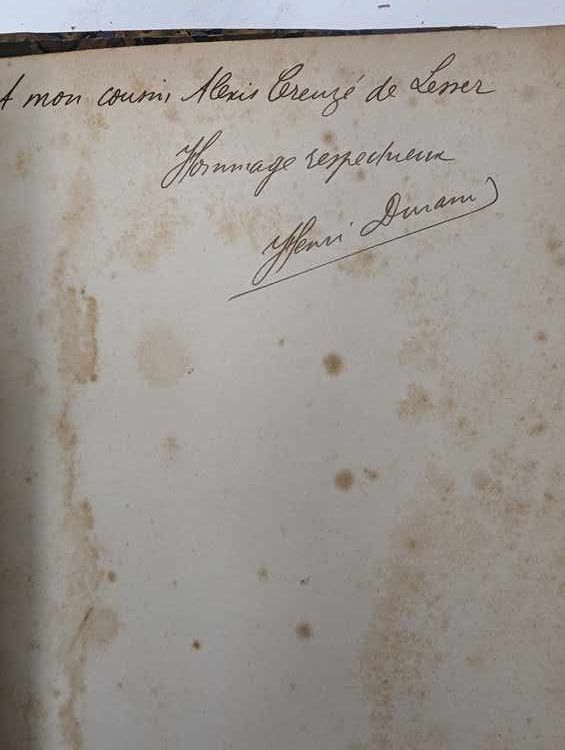 A mon cousin Alexis Creuzé de Lesser
Hommage respectueux
Henri Durand